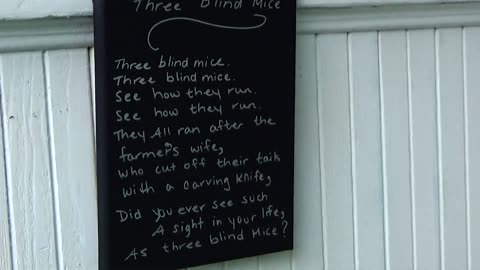 Three Blind Mice
Three blind mice.
Three blind mice.
See how they run.
See how they run.
They All ran after the
farmers wife,
who cut off their tails
with a carving knife,
Did you ever see such
A sight in your life,
As three blind Mice?